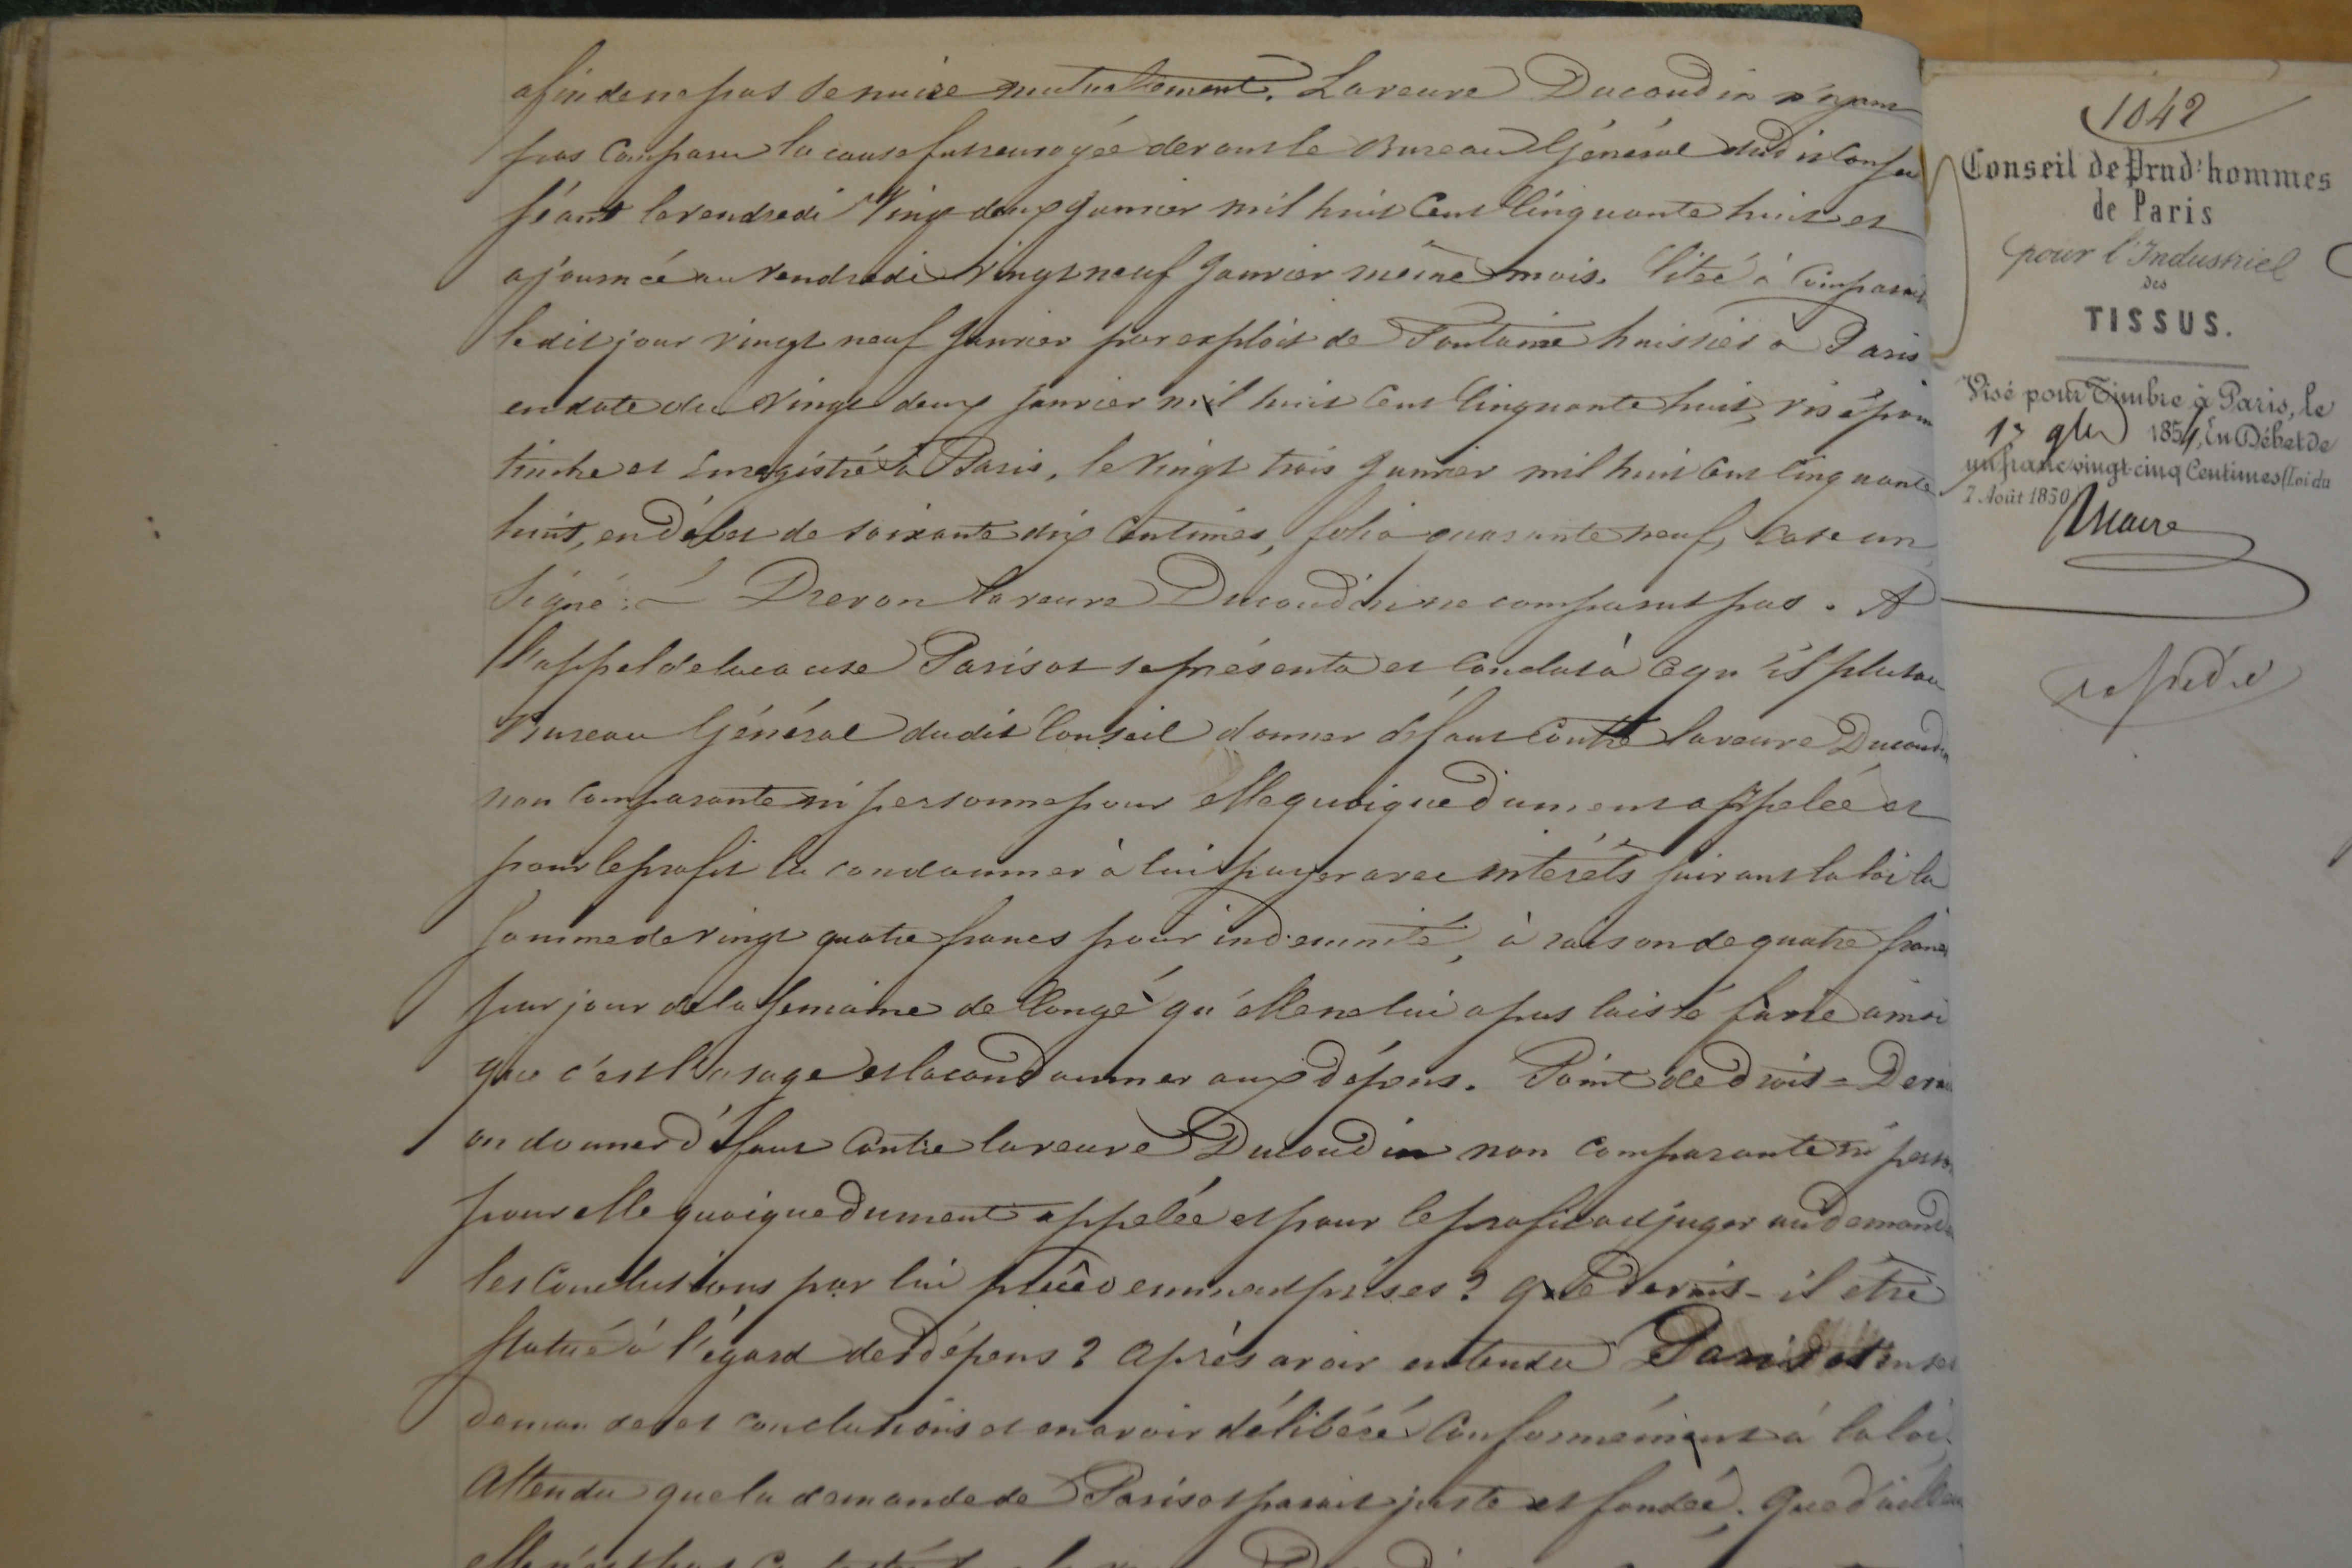 afin de ne pas se nuire mutuellement. La veuve Ducoudin n'ayant
pas comparu la cause fut renvoyée devant le Bureau Général dudit Conseil
séant le vendredi vingt deux Janvier mil huit cent cinquante huit et
ajournée au vendredi vingt neuf Janvier même mois. Citée à comparaître
ledit jour vingt neuf Janvier par exploit de Fontaine huissier à Paris
en date du vingt deux Janvier mil huit cent cinquante huit, visé pour
timbre et enregistré à Paris, le vingt trois Janvier mil huit cent cinquante
huit, en débet de soixante dix centimes, folio quarante neuf, case un
signé: — Drevon la veuve Ducoudin ne comparut pas. A
l'appel de la cause Parisot se présenta et conclut à ce qu'il plut au
Bureau Général dudit Conseil donner défaut contre la veuve Ducoudin
non comparante ni personne pour elle quoique dument appelée et
pour le profit la condamner à lui payer avec intérêts suivant la loi la
somme de vingt quatre francs pour indemnité, à raison de quatre francs
par jour de la semaine de Congé qu'elle ne lui a pas laissé faire ainsi
que c'est l'usage et la condamner aux dépens. Point de droit = Doit
on donner défaut contre la veuve Ducoudin non comparante ni person
pour elle quoique dument appelée et pour le profit adjuger au demand
les conclusions par lui précédemment prises? Que doit-il être
statué à l'égard des dépens? Après avoir entendu Parisot en ses
demandes et conclusions et en avoir délibéré conformément à la loi;
Attendu que la demande de Parisot parait juste et fondée. Que d'ailleurs
1042
Conseil de Prud'hommes
de Paris
pour l'Industriel
des
TISSUS.
Visé pour Timbre à Paris, le
185 En Débet de
un franc vingt-cinq Centimes (Loi du
2 Août 1850)